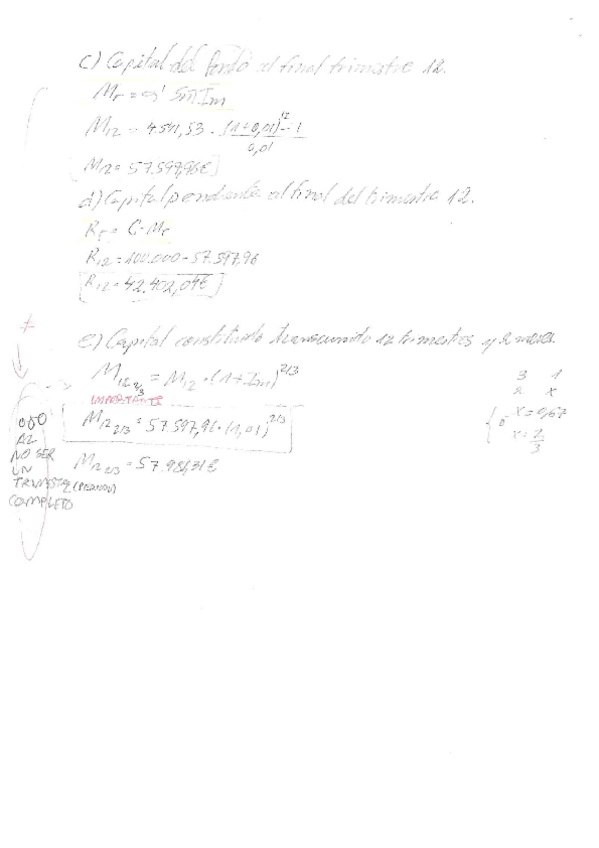 c) Capital del fondo al final trimestre 12.
Mr = a' Sm̅Im
M12 = 4.541,53 · (1+0,01)^12 - 1 / 0,01
M12 = 57.597,96€
d) Capital pendiente al final del trimestre 12.
Rr = C - Mr
R12 = 100.000 - 57.597,96
R12 = 42.402,04€
e) Capital constituido transcurrido 12 trimestres y 2 meses.
M12 2/3 = M12 · (1+Im)^2/3
IMPORTANTE
M12 2/3 = 57.597,96 · (1,01)^2/3
M12 2/3 = 57.981,31€
3 1
2 x
x = 0,67
x = 2/3
OJO
AL
NO SER
UN
TRIMESTRE
COMPLETO